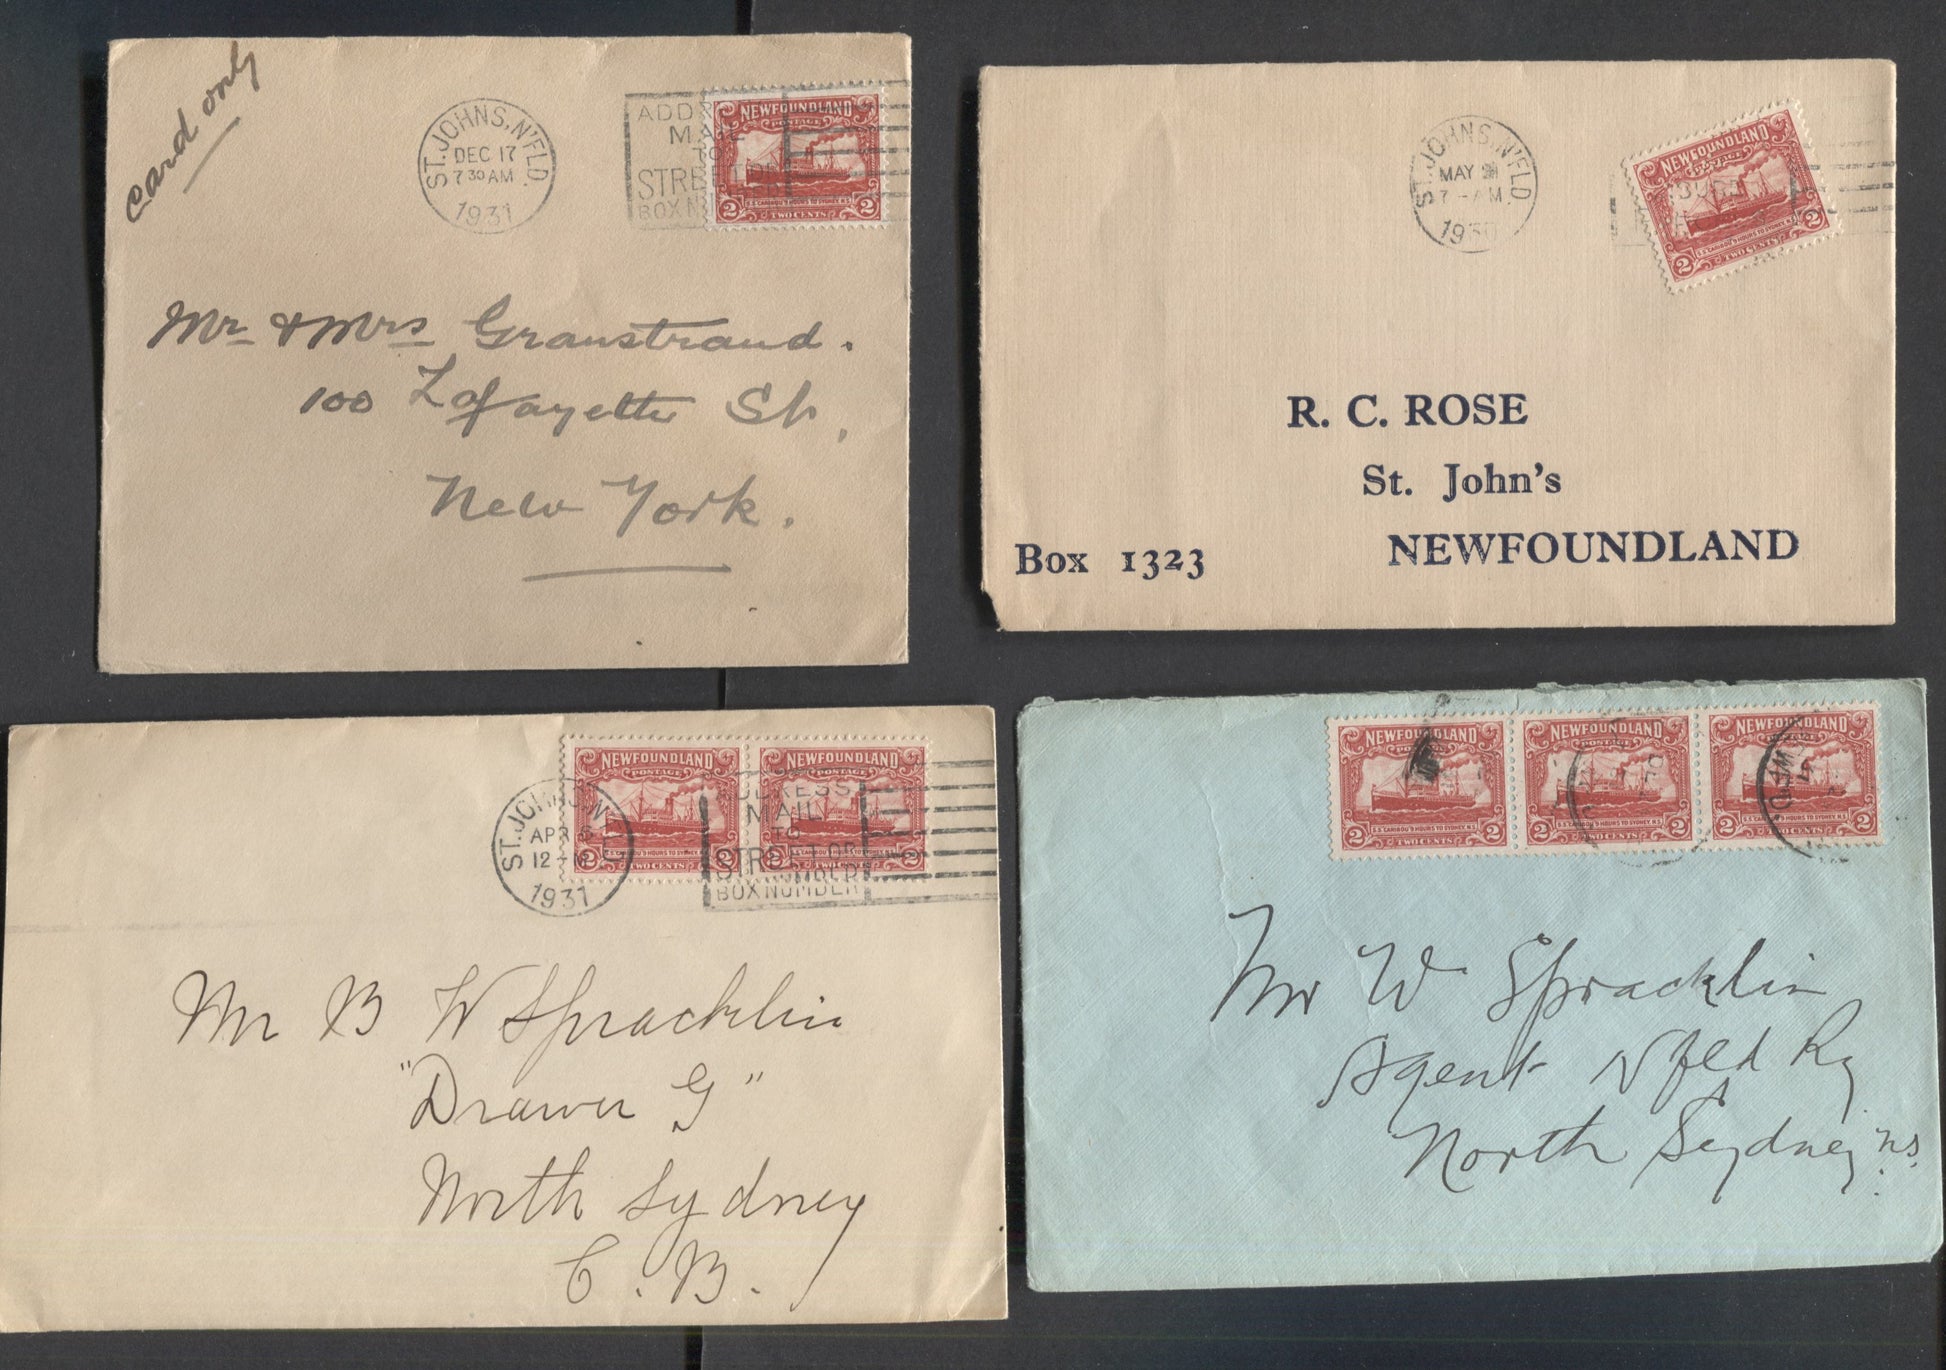 card only
ST. JOHNS, N'FLD.
DEC 17
7 30 AM
1931
MAIL
TO
BOX
NEWFOUNDLAND
POSTAGE
S.S. CARIBOU 9 HOURS TO SYDNEY. N.S.
2 TWO CENTS 2
Mr & Mrs Granstrand.
100 Lafayette St,
New York.
ST. JOHNS, N'FLD.
MAY
7 - AM
NEWFOUNDLAND
POSTAGE
S.S. CARIBOU 9 HOURS TO SYDNEY. N.S.
2 TWO CENTS 2
R. C. ROSE
St. John's
NEWFOUNDLAND
Box 1323
ST. JOHNS, N
APR
12
1931
ADDRESS
MAIL
TO
STREET OR
BOX NUMBER
NEWFOUNDLAND NEWFOUNDLAND
POSTAGE POSTAGE
S.S. CARIBOU 9 HOURS TO SYDNEY. N.S.
2 TWO CENTS 2 2 TWO CENTS 2
Mr B W Spracklin
"Drawer G"
North Sydney
C. B.
NEWFOUNDLAND NEWFOUNDLAND NEWFOUNDLAND
POSTAGE POSTAGE
S.S. CARIBOU 9 HOURS TO SYDNEY. N.S. S.S. CARIBOU 9 HOURS TO SYDNEY. N.S. S.S. CARIBOU 9 HOURS TO SYDNEY. N.S.
2 TWO CENTS 2 2 TWO CENTS 2 2 TWO CENTS 2
Mr W Spracklin
Agent Nfld Ry
North Sydney N.S.